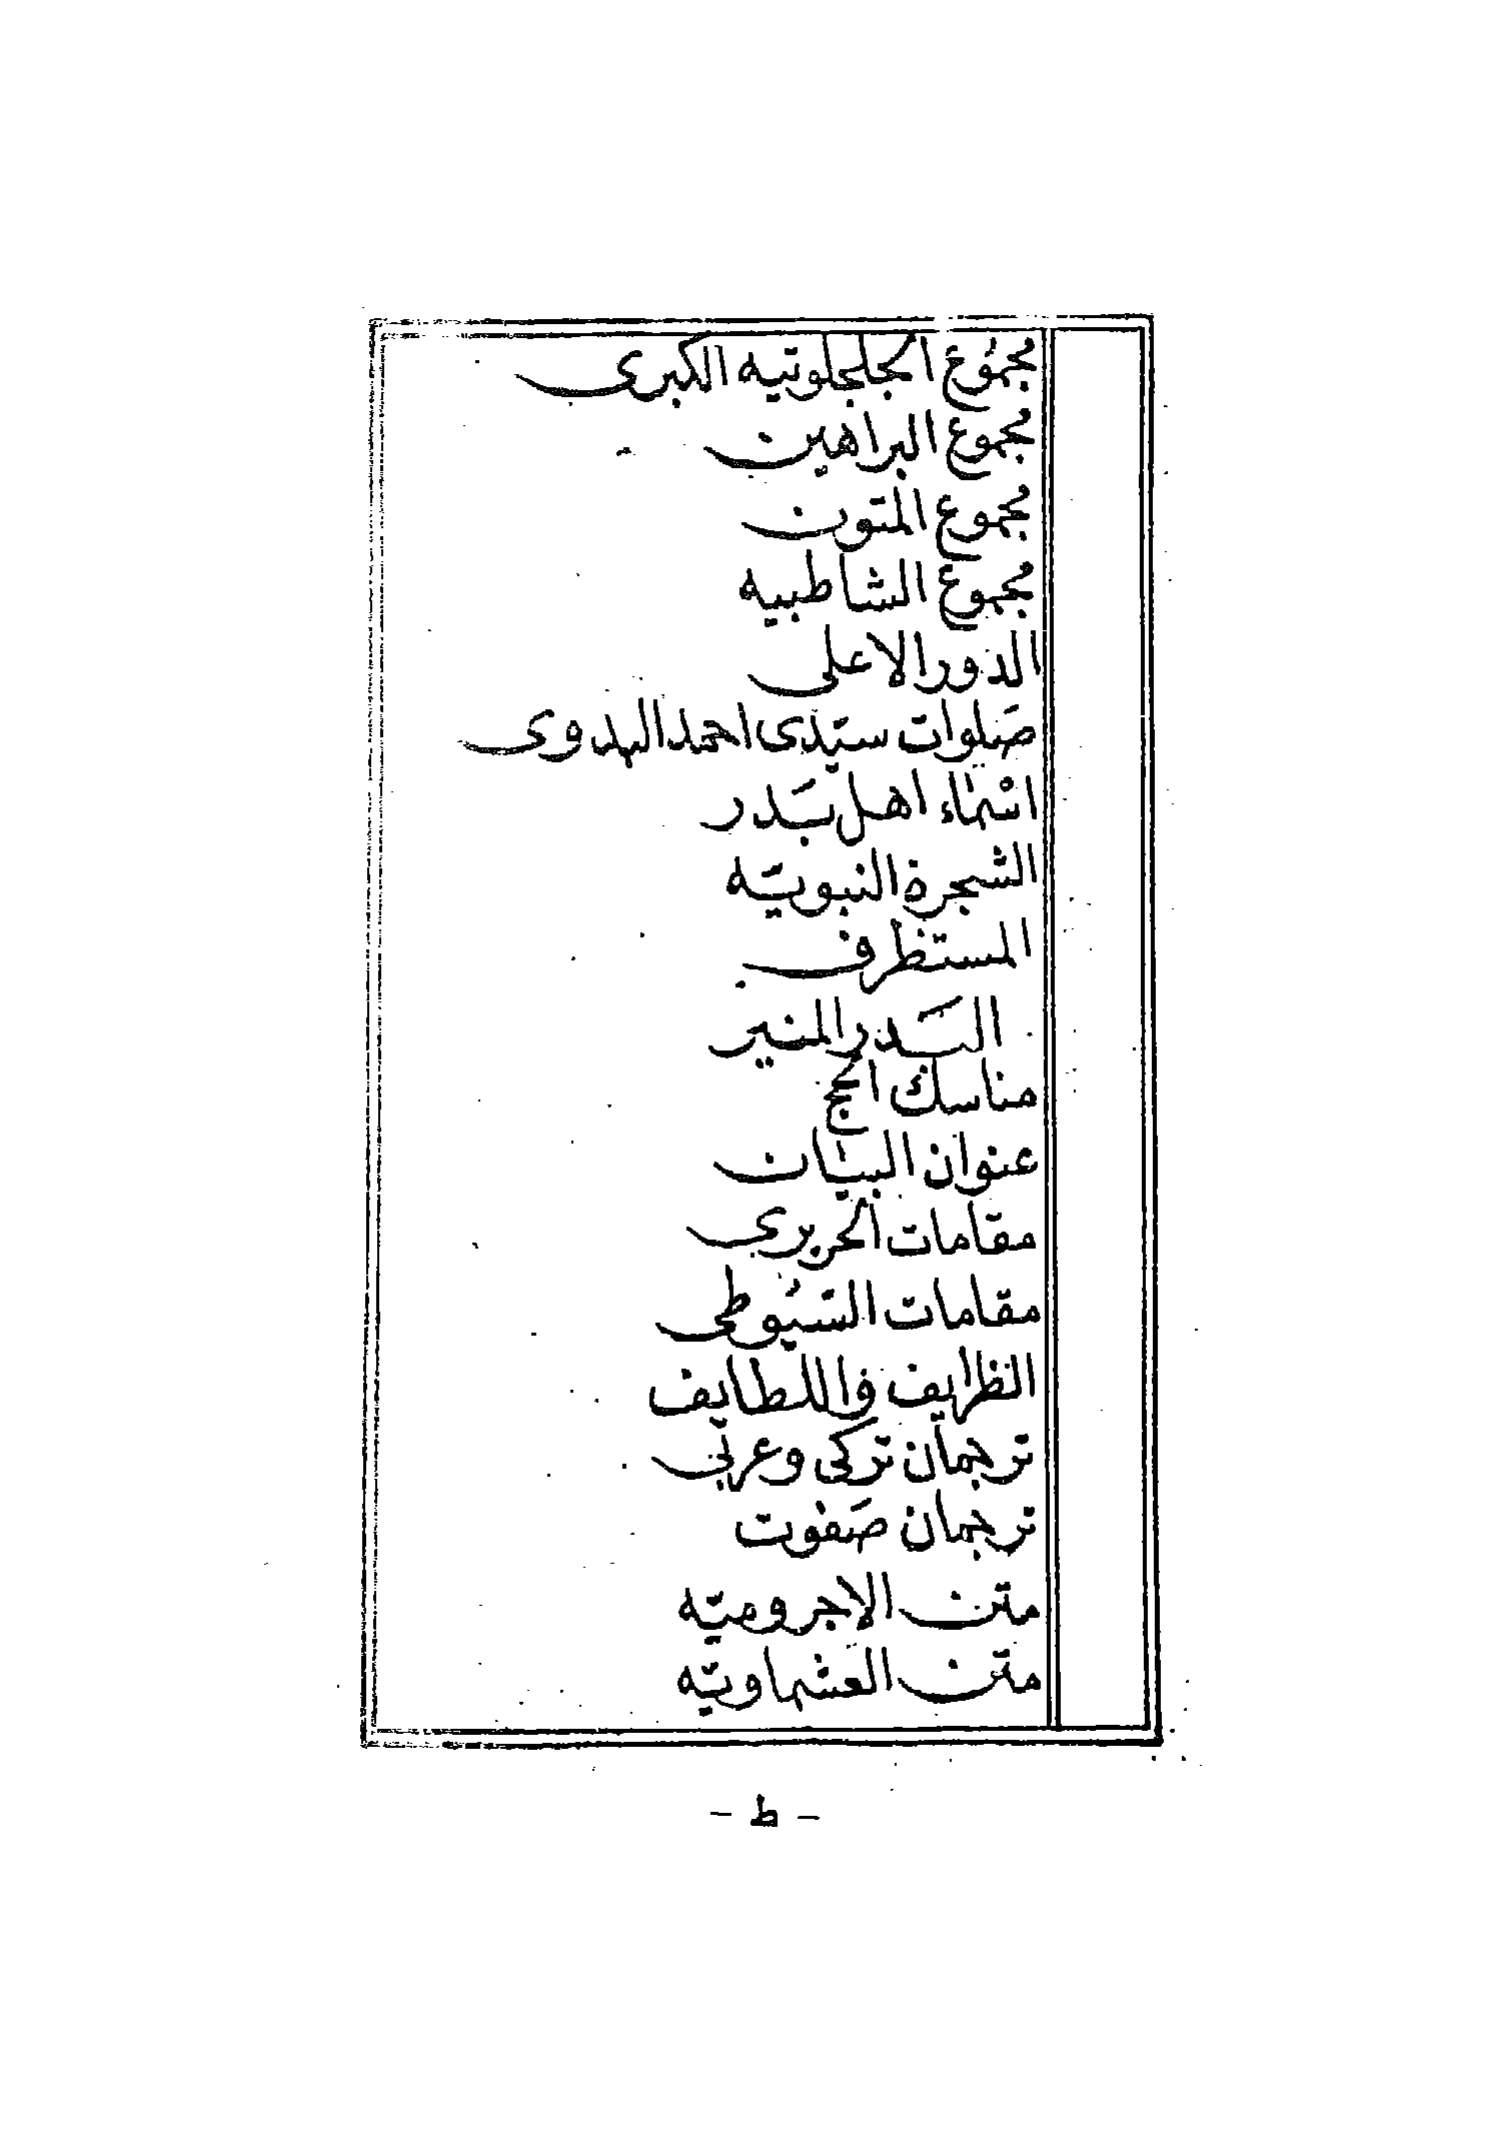 مجموع الجلجلوتيه الكبرى
مجموع البراهين
مجموع المتون
مجموع الشاطبيه
الدور الاعلى
صَلوات سيّدى احمد البدوى
اسْمَاء اهل بَدر
الشجرة النبويّه
المستظرف
البَدر المنير
مناسك الحج
عنوان البيَان
مقامات الحريري
مقامات السّيُوطى
الظرايف واللطايف
ترجمان تركى وعربى
ترجمان صَفوت
متن الاجروميّه
متن العشماويّه
- ط -